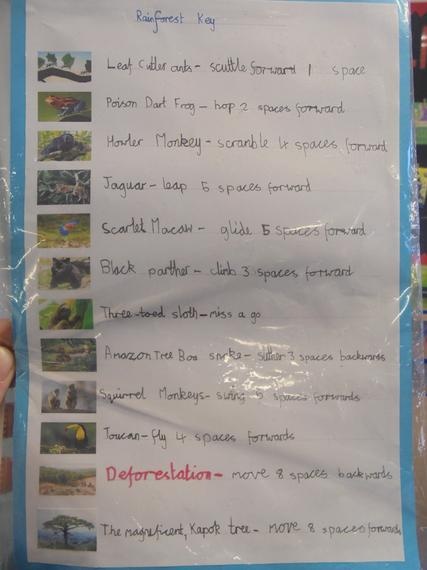 Rainforest Key
Leaf Cutter ants - scuttle forward 1 space
Poison Dart Frog - hop 2 spaces forward
Howler Monkey - scramble 4 spaces forward
Jaguar - leap 5 spaces forward
Scarlet Macaw - glide 5 spaces forward
Black panther - climb 3 spaces forward
Three-toed sloth - miss a go
Amazon Tree Boa snake - slither 3 spaces backwards
Squirrel Monkeys - swing spaces forwards
Toucan - fly 4 spaces forwards
Deforestation - move 8 spaces backwards
The magnificent, Kapok tree - move 8 spaces forwards